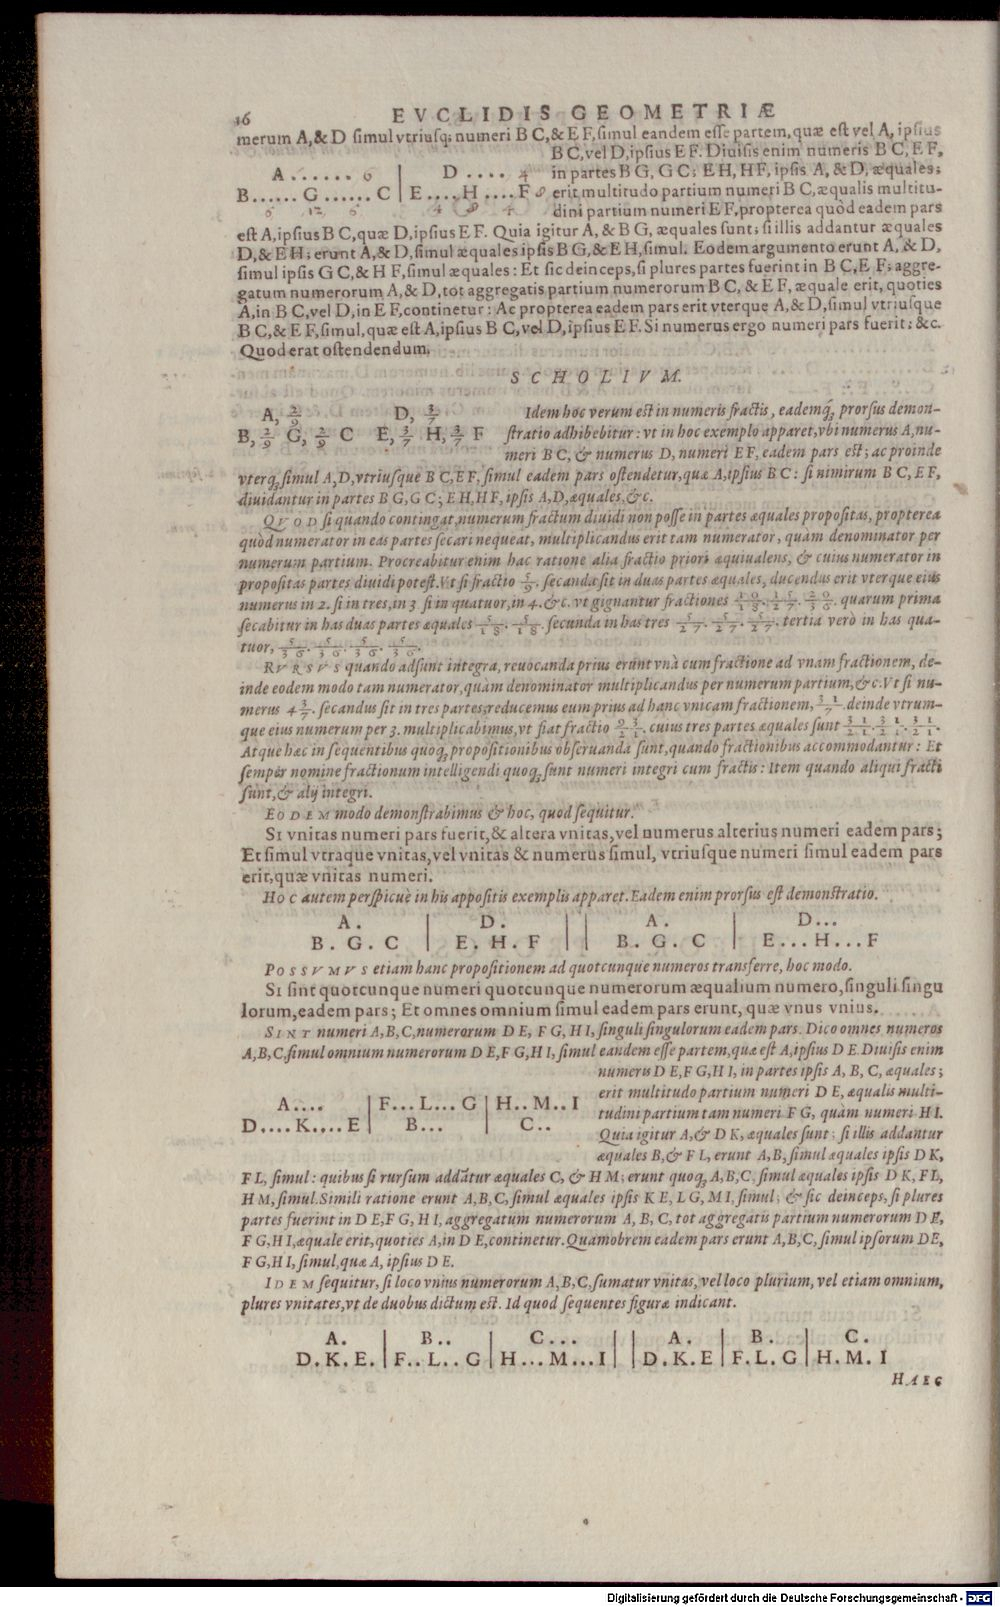 16 EVCLIDIS GEOMETRIÆ
merum A,& D simul vtriusq; numeri B C,& E F, simul eandem esse partem, quæ est vel A, ipsius
B C, vel D, ipsius E F. Diuisis enim numeris B C, E F,
A . . . . . . 6 | D . . . . 4
in partes B G, G C; E H, H F, ipsis A, & D, æquales;
B . . . . . . G . . . . . . C | E . . . . H . . . . F 8
erit multitudo partium numeri B C, æqualis multitu-
6 12 6 4 8 4
dini partium numeri E F, propterea quòd eadem pars
est A, ipsius B C, quæ D, ipsius E F. Quia igitur A, & B G, æquales sunt; si illis addantur æquales
D, & E H; erunt A, & D, simul æquales ipsis B G, & E H, simul. Eodem argumento erunt A, & D,
simul ipsis G C, & H F, simul æquales: Et sic deinceps, si plures partes fuerint in B C, E F; aggre-
gatum numerorum A, & D, tot aggregatis partium numerorum B C, & E F, æquale erit, quoties
A, in B C, vel D, in E F, continetur: Ac propterea eadem pars erit vterque A, & D, simul vtriusque
B C, & E F, simul, quæ est A, ipsius B C, vel D, ipsius E F. Si numerus ergo numeri pars fuerit: &c.
Quod erat ostendendum.
SCHOLIVM.
A, 2/9 D, 3/7
Idem hoc verum est in numeris fractis, eademq; prorsus demon-
B, 2/9 G, 2/9 C E, 3/7 H, 3/7 F
stratio adhibebitur: vt in hoc exemplo apparet, vbi numerus A, nu-
meri B C, & numerus D, numeri E F, eadem pars est; ac proinde
vterq; simul A, D, vtriusque B C, E F, simul eadem pars ostendetur, quæ A, ipsius B C: si nimirum B C, E F,
diuidantur in partes B G, G C; E H, H F, ipsis A, D, æquales, &c.
QVOD si quando contingat, numerum fractum diuidi non posse in partes æquales propositas, propterea
quòd numerator in eas partes secari nequeat, multiplicandus erit tam numerator, quàm denominator per
numerum partium. Procreabitur enim hac ratione alia fractio priori æquiualens, & cuius numerator in
propositas partes diuidi potest. Vt si fractio 5/9. secanda sit in duas partes æquales, ducendus erit vterque eius
numerus in 2. si in tres, in 3. si in quatuor, in 4. &c. vt gignantur fractiones 10/18. 15/27. 20/36. quarum prima
secabitur in has duas partes æquales 5/18. 5/18. secunda in has tres 5/27. 5/27. 5/27. tertia verò in has qua-
tuor, 5/36. 5/36. 5/36. 5/36.
RVRSVS quando adsunt integra, reuocanda prius erunt vnà cum fractione ad vnam fractionem, de-
inde eodem modo tam numerator, quàm denominator multiplicandus per numerum partium, &c. Vt si nu-
merus 4 3/7. secandus sit in tres partes, reducemus eum prius ad hanc vnicam fractionem, 31/7. deinde vtrum-
que eius numerum per 3. multiplicabimus, vt fiat fractio 93/21. cuius tres partes æquales sunt 31/21. 31/21. 31/21.
Atque hæc in sequentibus quoq; propositionibus obseruanda sunt, quando fractionibus accommodantur: Et
semper nomine fractionum intelligendi quoq; sunt numeri integri cum fractis: Item quando aliqui fracti
sunt, & alij integri.
EODEM modo demonstrabimus & hoc, quod sequitur.
SI vnitas numeri pars fuerit, & altera vnitas, vel numerus alterius numeri eadem pars;
Et simul vtraque vnitas, vel vnitas & numerus simul, vtriusque numeri simul eadem pars
erit, quæ vnitas numeri.
HOC autem perspicuè in his appositis exemplis apparet. Eadem enim prorsus est demonstratio.
A. | D. || A. | D...
B . G . C | E . H . F || B . G . C | E . . . H . . . F
POSSVMVS etiam hanc propositionem ad quotcunque numeros transferre, hoc modo.
SI sint quotcunque numeri quotcunque numerorum æqualium numero, singuli singu
lorum, eadem pars; Et omnes omnium simul eadem pars erunt, quæ vnus vnius.
SINT numeri A, B, C, numerorum D E, F G, H I, singuli singulorum eadem pars. Dico omnes numeros
A, B, C, simul omnium numerorum D E, F G, H I, simul eandem esse partem, quæ est A, ipsius D E. Diuisis enim
numeris D E, F G, H I, in partes ipsis A, B, C, æquales;
erit multitudo partium numeri D E, æqualis multi-
A.... | F...L...G | H..M..I
tudini partium tam numeri F G, quàm numeri H I.
D....K....E | B... | C..
Quia igitur A, & D K, æquales sunt; si illis addantur
æquales B, & F L, erunt A, B, simul æquales ipsis D K,
F L, simul: quibus si rursum addātur æquales C, & H M; erunt quoq; A, B, C, simul æquales ipsis D K, F L,
H M, simul. Simili ratione erunt A, B, C, simul æquales ipsis K E, L G, M I, simul; & sic deinceps, si plures
partes fuerint in D E, F G, H I, aggregatum numerorum A, B, C, tot aggregatis partium numerorum D E,
F G, H I, æquale erit, quoties A, in D E, continetur. Quamobrem eadem pars erunt A, B, C, simul ipsorum D E,
F G, H I, simul, quæ A, ipsius D E.
IDEM sequitur, si loco vnius numerorum A, B, C, sumatur vnitas, vel loco plurium, vel etiam omnium,
plures vnitates, vt de duobus dictum est. Id quod sequentes figuræ indicant.
A. | B.. | C... || A. | B. | C.
D.K.E. | F..L..G | H...M...I || D.K.E | F.L.G | H.M.I
HAEC
Digitalisierung gefördert durch die Deutsche Forschungsgemeinschaft - DFG